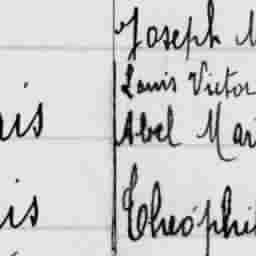 Joseph M
Louis Victor
is Abel Mari
is Théophil